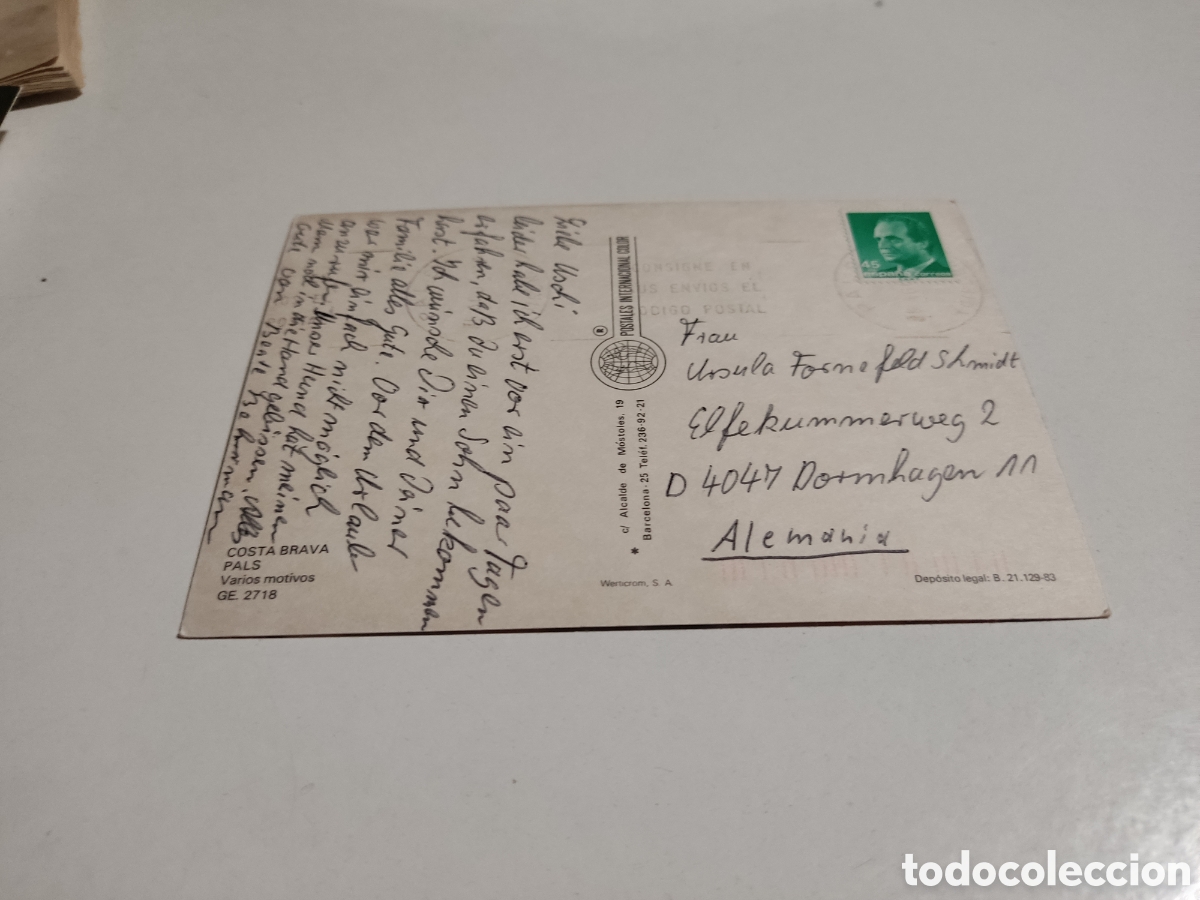 Liebe Uschi
leider habe ich erst vor ein paar Tagen
erfahren, daß Du einen Sohn bekommen
hast. Ich wünsche Dir und Deiner
Familie alles Gute. Vor dem Urlaub
war mir einfach nicht möglich
anzurufen. Unser Hund hat meinen
Mann noch in die Hand gebissen. Alles
Gute von
COSTA BRAVA
PALS
Varios motivos
GE. 2718
POSTALES INTERNACIONAL COLOR
®
* c/ Alcalde de Móstoles, 19
Barcelona-25 Teléf. 236-92-21
CONSIGNE EN
SUS ENVIOS EL
CODIGO POSTAL
45
ESPAÑA correos
Frau
Ursula Fornefeld Shmidt
Elfekummerweg 2
D 4047 Dormhagen 11
Alemania
S. A.
Depósito legal: B. 21.129-83
todocoleccion